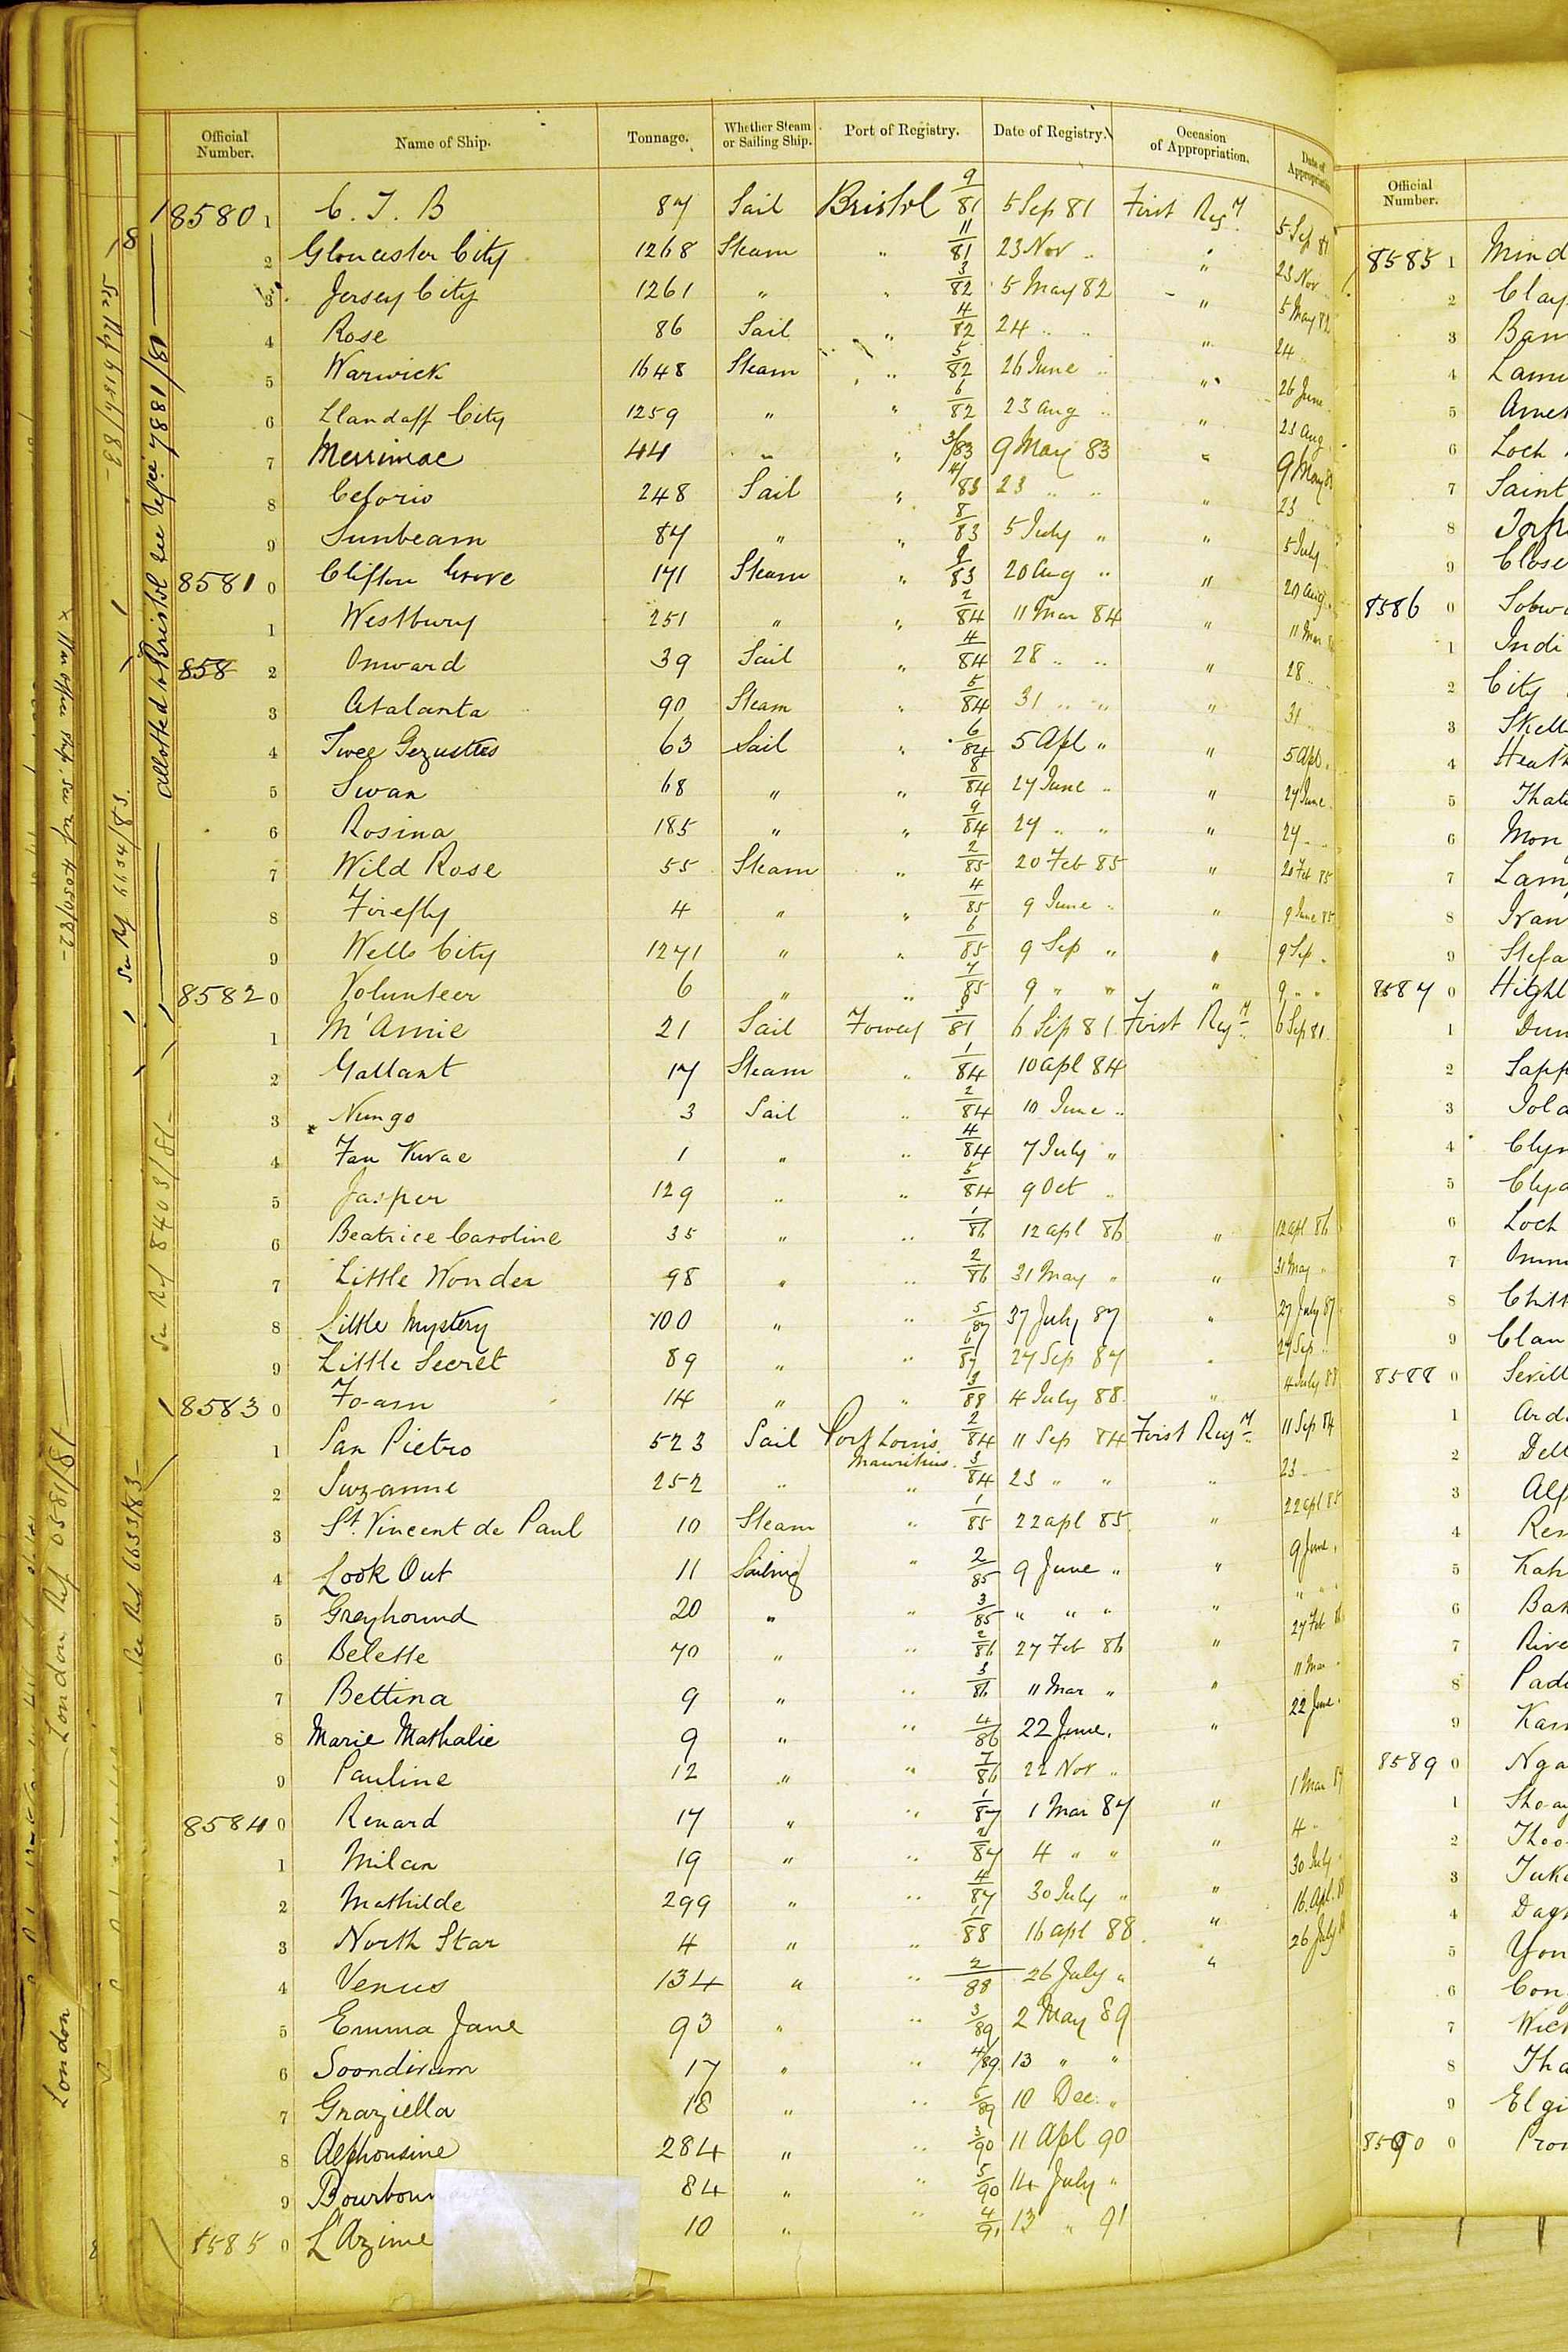 Official Number. Name of Ship. Tonnage. Whether Steam or Sailing Ship. Port of Registry. Date of Registry. Occasion of Appropriation. Date of Appropriation
8580 1 C. T. B 87 Sail Bristol 9/81 5 Sep 81 First Regy 5 Sep 81
2 Gloucester City 1268 Steam " 11/81 23 Nov " " 23 Nov
3 Jersey City 1261 " " 3/82 5 May 82 " 5 May 82
4 Rose 86 Sail " 4/82 24 " " " 24
5 Warwick 1648 Steam " 5/82 26 June " " 26 June
6 Llandaff City 1259 " " 6/82 23 Aug " " 23 Aug
7 Merrimac 44 " " 3/83 9 May 83 " 9 May 83
8 248 Sail " 4/83 23 " " " 23
9 Sunbeam 87 " " 8/83 5 July " " 5 July
8581 0 Clifton Grove 171 Steam " 9/83 20 Aug " " 20 Aug
1 Westbury 251 " " 2/84 11 Mar 84 " 11 Mar
858 2 Onward 39 Sail " 4/84 28 " " " 28
3 Atalanta 90 Steam " 5/84 31 " " " 31
4 Twee Gezusters 63 Sail " 6/84 5 Apl " " 5 Apl
5 Swan 68 " " 8/84 27 June " " 27 June
6 Rosina 185 " " 9/84 27 " " " 27
7 Wild Rose 55 Steam " 2/85 20 Feb 85 " 20 Feb 85
8 Firefly 4 " " 4/85 9 June " " 9 June 85
9 Wells City 1271 " " 6/85 9 Sep " " 9 Sep
8582 0 Volunteer 6 " " 7/85 9 " " " 9 " "
1 M'Annie 21 Sail Fowey 3/81 6 Sep 81 First Regy 6 Sep 81
2 Gallant 17 Steam " 1/84 10 Apl 84
3 Nungo 3 Sail " 2/84 10 June "
4 1 " " 4/84 7 July "
5 Jasper 129 " " 5/84 9 Oct "
6 Beatrice Caroline 35 " " 1/86 12 Apl 86 " 12 Apl 86
7 Little Wonder 98 " " 2/86 31 May " " 31 May "
8 Little Mystery 100 " " 5/87 27 July 87 " 27 July 87
9 Little Secret 89 " " 6/87 27 Sep 87 " 27 Sep
8583 0 Foam 14 " " 3/88 4 July 88 " 4 July 88
1 San Pietro 523 Sail Port Louis Mauritius 2/84 11 Sep 84 First Regy 11 Sep 84
2 Suzanne 252 " " 3/84 23 " " " 23
3 St. Vincent de Paul 10 Steam " 1/85 22 Apl 85 " 22 Apl 85
4 Look Out 11 Sailing " 2/85 9 June " " 9 June
5 Greyhound 20 " " 3/85 " " " " " " "
6 Belette 70 " " 2/86 27 Feb 86 " 27 Feb 86
7 Bettina 9 " " 3/86 11 Mar " " 11 Mar
8 Marie Mathalie 9 " " 4/86 22 June " 22 June
9 Pauline 12 " " 7/86 22 Nov "
8584 0 Renard 17 " " 1/87 1 Mar 87 " 1 Mar 87
1 Milan 19 " " 2/87 4 " " " 4
2 Mathilde 299 " " 4/87 30 July " " 30 July
3 North Star 4 " " 1/88 16 Apl 88 " 16 Apl 88
4 Venus 134 " " 2/88 26 July " " 26 July
5 Emma Jane 93 " " 3/89 2 May 89
6 Soondirum 17 " " 4/89 13 " "
7 Graziella 18 " " 5/89 10 Dec "
8 Alphonsine 284 " " 3/90 11 Apl 90
9 Bourbon 84 " " 5/90 14 July "
8585 0 L'Azime 10 " " 4/91 13 " 91
Allotted to Bristol see Ref: 7881/80
See Ref 6654/83
See Ref 8403/81
See Ref 6653/83
London Ref 0581/81
London
Official Number.
8585 1 Mind
2 Clay
3 Ban
4 Lami
5 Amet
6 Loch
7 Saint
8
9 Close
8586 0 Sobw
1 Indi
2 City
3 Skell
4 Heath
5 Thal
6 Mon
7 Lam
8 Ivan
9 Stefa
8587 0 Highl
1 Dun
2 Sapp
3 Iola
4 Clyn
5 Clyd
6 Loch
7
8 Chitt
9 Clan
8588 0 Sevill
1 Ard
2 Dell
3 Alf
4 Ren
5 Kah
6 Bah
7 Rive
8 Pad
9 Kar
8589 0 Nga
1 Shoay
2 Thoo
3 Tuk
4 Dag
5 Yon
6 Con
7
8 Tha
9 Elgi
8590 0 Pro